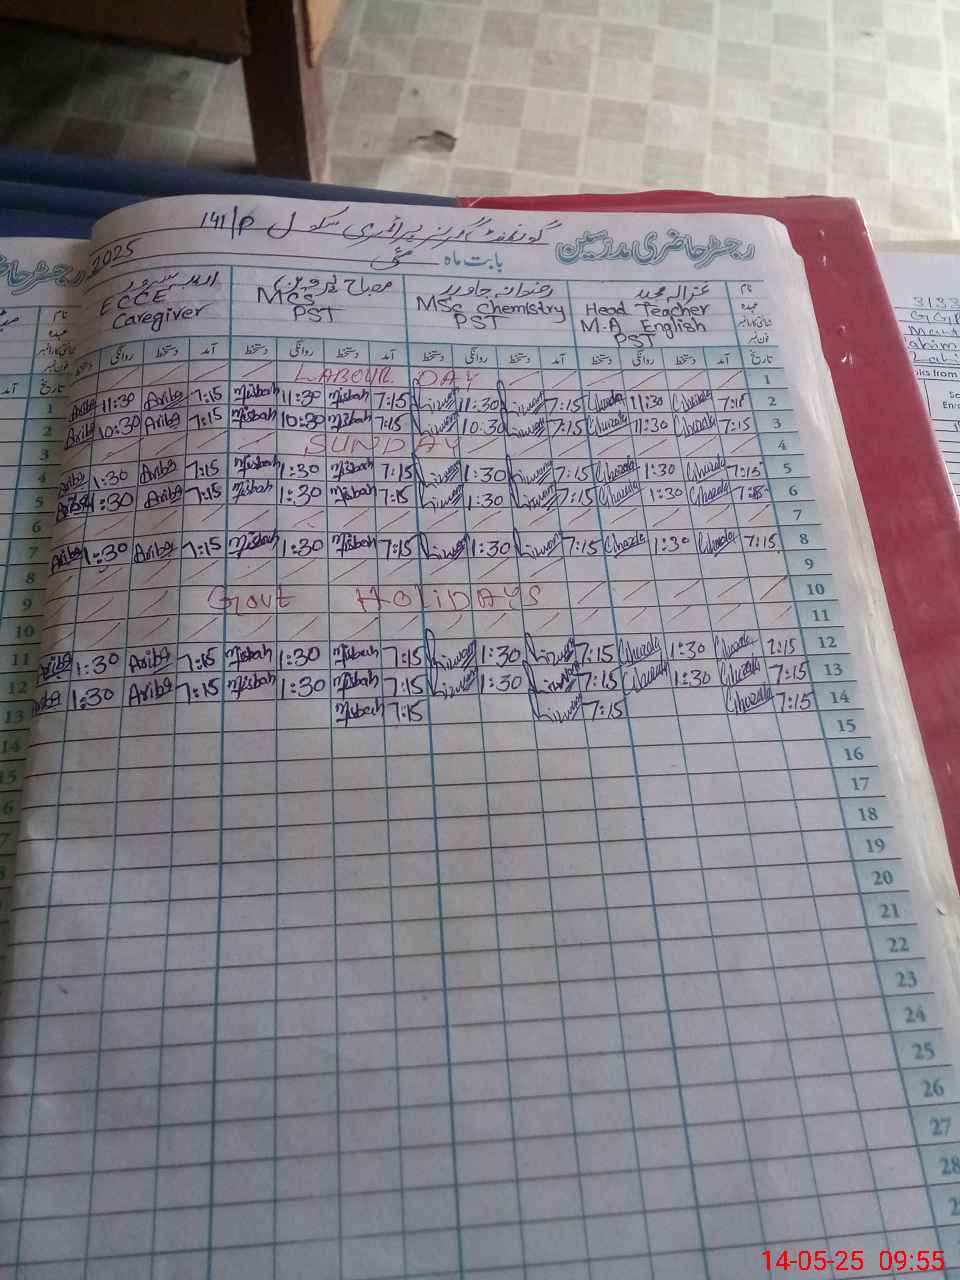 رجسٹر حاضری مدرسین گورنمنٹ گرلز پرائمری سکول 141/P
بابت ماہ مئی 2025
نام غزالہ مجید رضوانہ جاوید مصباح پروین
عہدہ Head Teacher MSc Chemistry MCS ECCE
M.A English PST PST Caregiver
PST
تاریخ آمد دستخط روانگی دستخط آمد دستخط روانگی دستخط آمد دستخط روانگی دستخط آمد دستخط روانگی دستخط
1 LABOUR DAY
2 7:15 Ghazala 11:30 Ghazala 7:15 Rizwana 11:30 Rizwana 7:15 Misbah 11:30 Misbah 7:15 Ariba 11:30 Ariba
3 7:15 Ghazala 11:30 Ghazala 7:15 Rizwana 10:30 Rizwana 7:15 Misbah 10:30 Misbah 7:15 Ariba 10:30 Ariba
4 SUNDAY
5 7:15 Ghazala 1:30 Ghazala 7:15 Rizwana 1:30 Rizwana 7:15 Misbah 1:30 Misbah 7:15 Ariba 1:30 Ariba
6 7:15 Ghazala 1:30 Ghazala 7:15 Rizwana 1:30 Rizwana 7:15 Misbah 1:30 Misbah 7:15 Ariba 1:30 Ariba
7
8 7:15 Ghazala 1:30 Ghazala 7:15 Rizwana 1:30 Rizwana 7:15 Misbah 1:30 Misbah 7:15 Ariba 1:30 Ariba
9
10 Govt HOliDAYS
11
12 7:15 Ghazala 1:30 Ghazala 7:15 Rizwana 1:30 Rizwana 7:15 Misbah 1:30 Misbah 7:15 Ariba 1:30 Ariba
13 7:15 Ghazala 1:30 Ghazala 7:15 Rizwana 1:30 Rizwana 7:15 Misbah 1:30 Misbah 7:15 Ariba 1:30 Ariba
14 7:15 Ghazala 7:15 Rizwana 7:15 Misbah
15
16
17
18
19
20
21
22
23
24
25
26
27
28
14-05-25 09:55